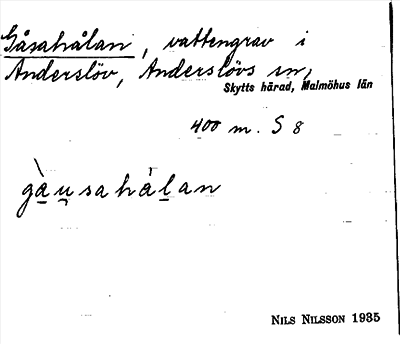 Gåsahålan, vattengrav i
Anderslöv, Anderslövs sn,
Skytts härad, Malmöhus län
400 m. S 8
gàu̯sahàlan
NILS NILSSON 1935